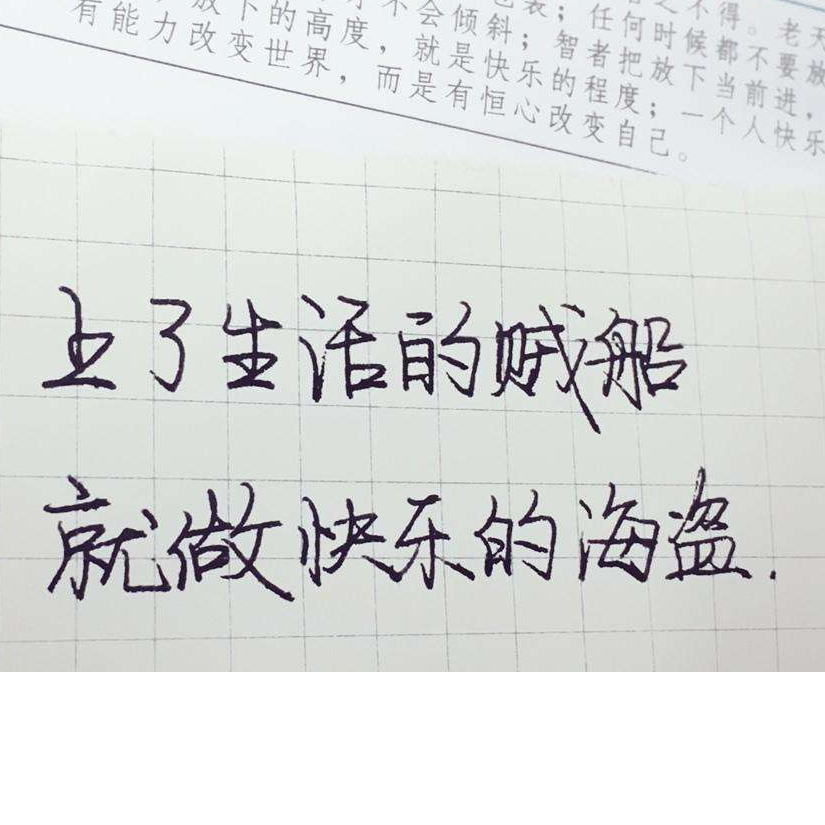 之不得。老天
装；任何时候都不要放
不会倾斜；智者把放下当前进，
放下的高度，就是快乐的程度；一个人快乐
有能力改变世界，而是有恒心改变自己。
上了生活的贼船
就做快乐的海盗.